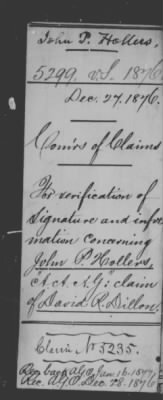 John P. Hollers.
5299. v.S. 1876
Dec. 27. 1876.
Com'rs of Claims
For verification of
signature and infor
mation concerning
John P. Hollers,
A.A.A.G: claim
of David R. Dillon.
Claim No 5235.
Rec. back A.G.O. Jan. 16. 1877
Rec. A.G.O. Dec. 28. 1876